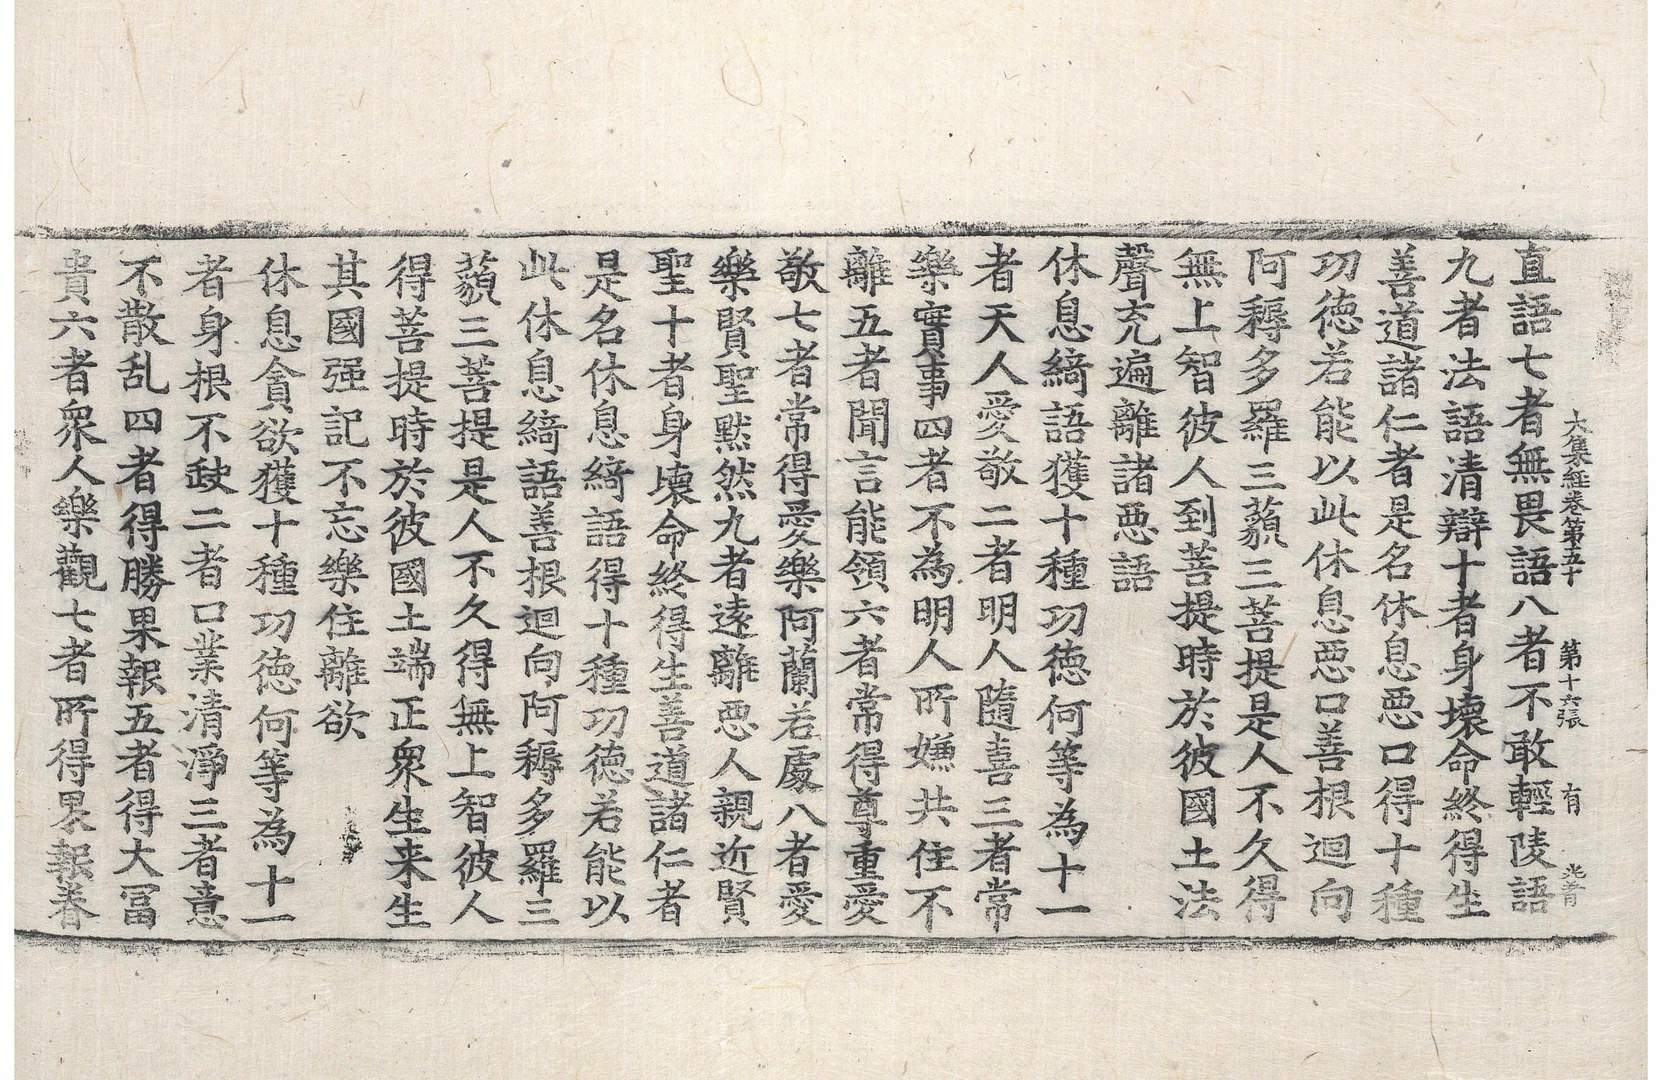 大集経卷第五十 第十六張 有
直語七者無畏語八者不敢輕陵語
九者法語清辯十者身壞命終得生
善道諸仁者是名休息惡口得十種
功德若能以此休息惡口善根迴向
阿耨多羅三藐三菩提是人不久得
無上智彼人到菩提時於彼國土法
聲充遍離諸惡語
休息綺語獲十種功德何等為十一
者天人愛敬二者明人隨喜三者常
樂實事四者不為明人所嫌共住不
離五者聞言能領六者常得尊重愛
敬七者常得愛樂阿蘭若處八者愛
樂賢聖默然九者遠離惡人親近賢
聖十者身壞命終得生善道諸仁者
是名休息綺語得十種功德若能以
此休息綺語善根迴向阿耨多羅三
藐三菩提是人不久得無上智彼人
得菩提時於彼國土端正衆生来生
其國强記不忘樂住離欲
休息貪欲獲十種功德何等為十一
者身根不缺二者口業清淨三者意
不散乱四者得勝果報五者得大冨
貴六者衆人樂觀七者所得果報眷